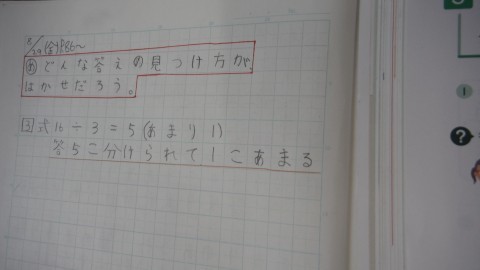 8/29(金)P.86〜
め どんな答えの見つけ方が、
はかせだろう。
3 式16÷3=5(あまり1)
答5こ分けられて1こあまる